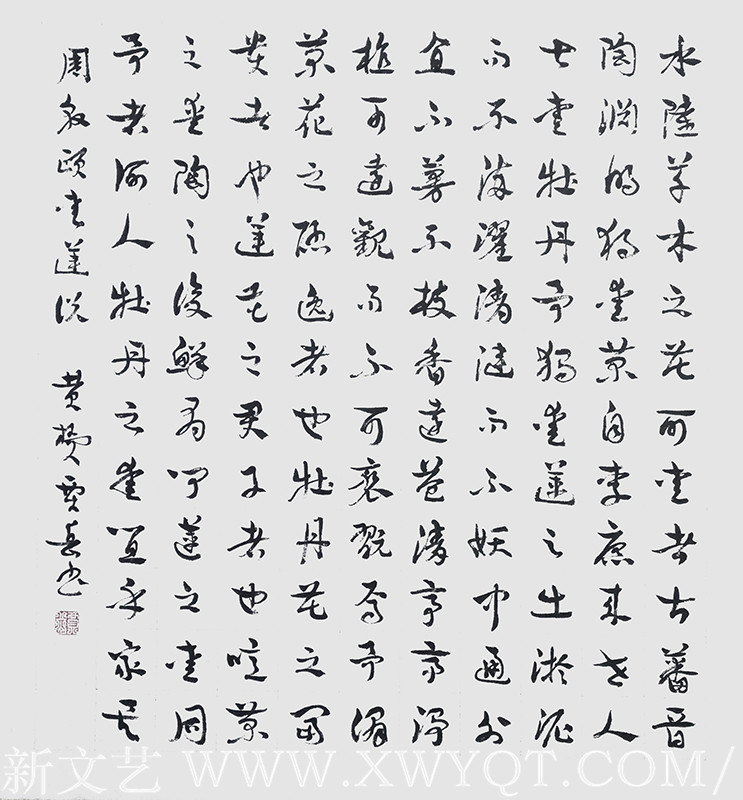 水陸草木之花可愛者甚蕃晉
陶淵明獨愛菊自李唐來世人
甚愛牡丹予獨愛蓮之出淤泥
而不染濯清漣而不妖中通外
直不蔓不枝香遠益清亭亭淨
植可遠觀而不可褻翫焉予謂
菊花之隱逸者也牡丹花之富
貴者也蓮花之君子者也噫菊
之愛陶之後鮮有聞蓮之愛同
予者何人牡丹之愛宜乎衆矣
周敦頤愛蓮說 黄
新文艺 WWW.XWYQT.COM/